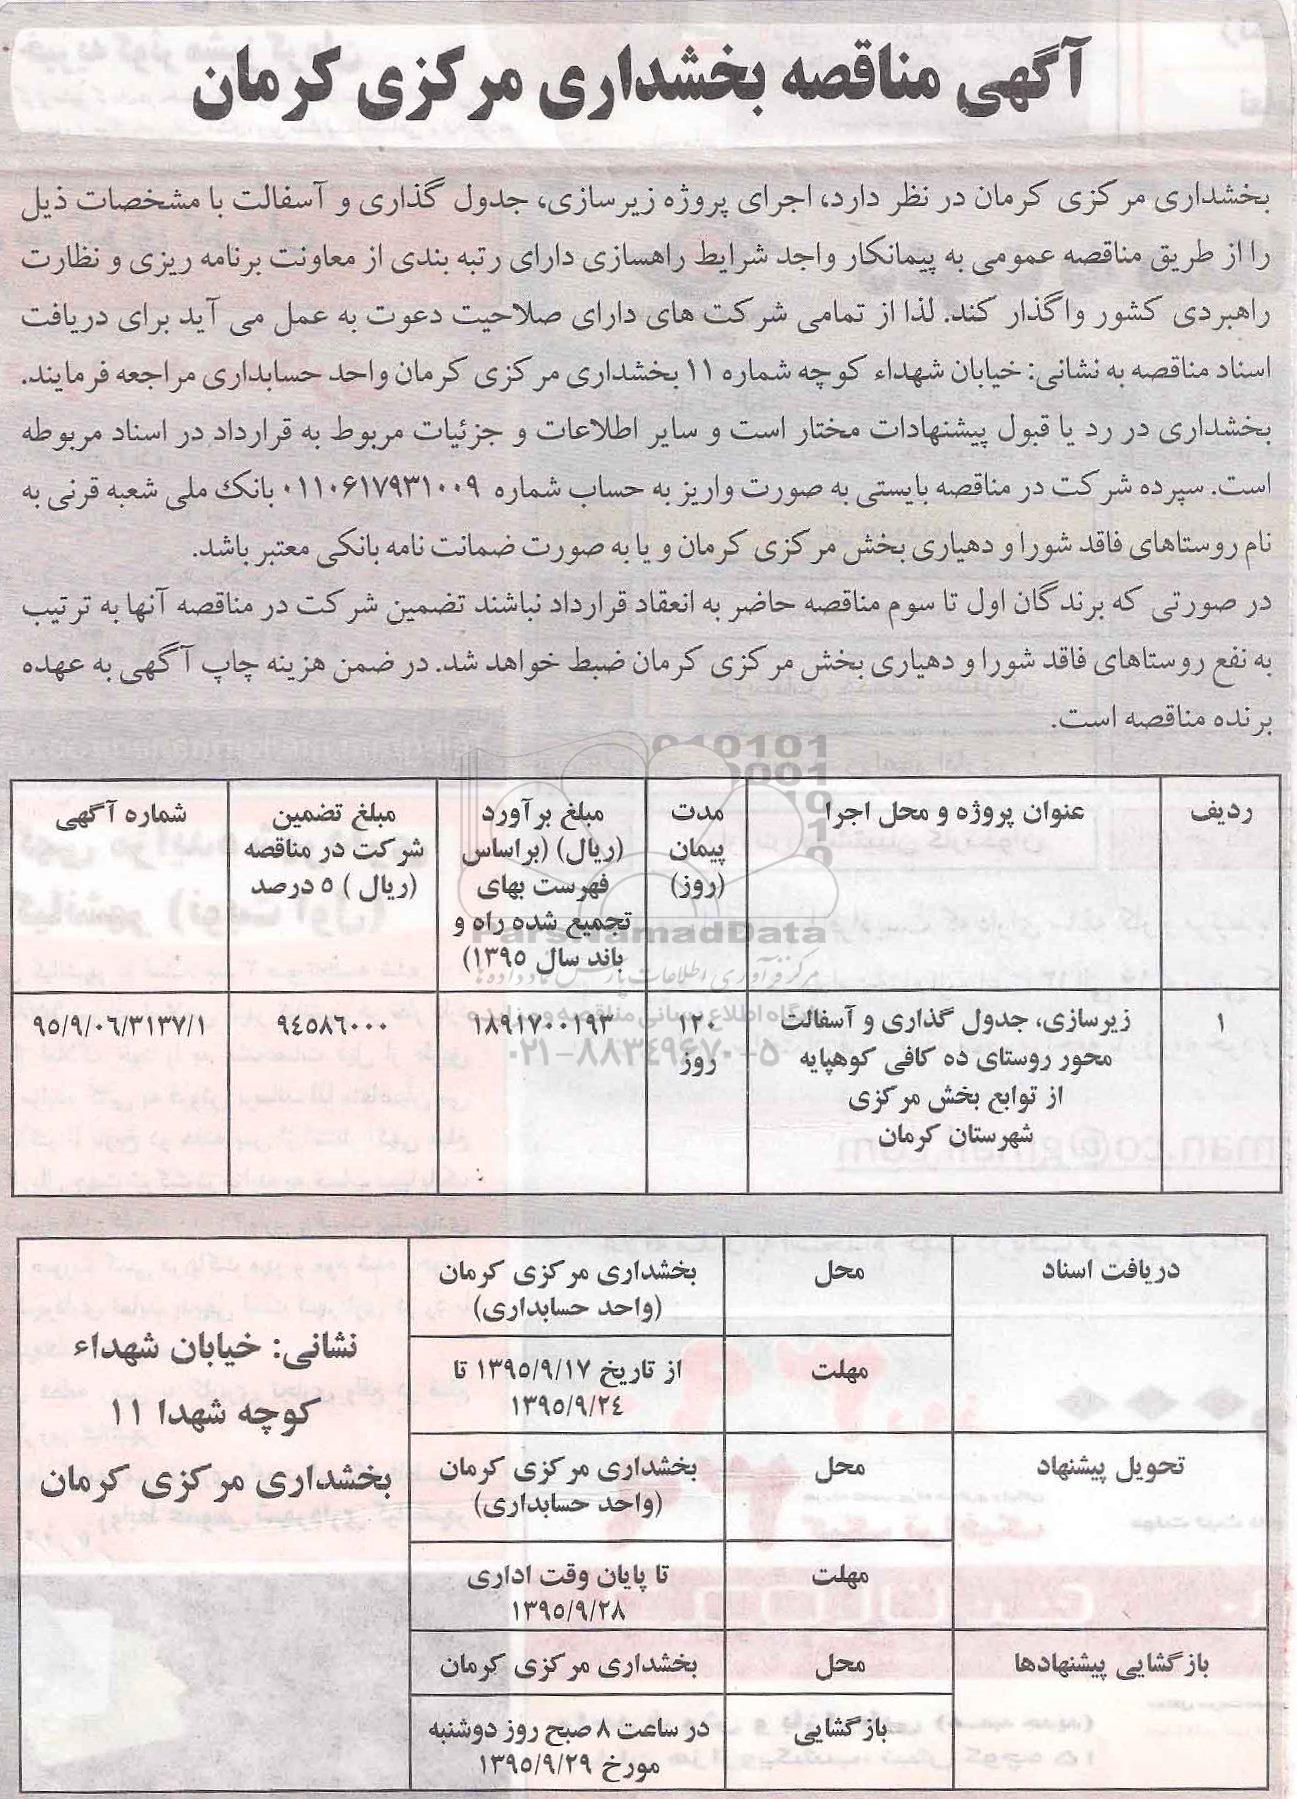 آگهی مناقصه بخشداری مرکزی کرمان
بخشداری مرکزی کرمان در نظر دارد، اجرای پروژه زیرسازی، جدول گذاری و آسفالت با مشخصات ذیل
را از طریق مناقصه عمومی به پیمانکار واجد شرایط راهسازی دارای رتبه بندی از معاونت برنامه ریزی و نظارت
راهبردی کشور واگذار کند. لذا از تمامی شرکت های دارای صلاحیت دعوت به عمل می آید برای دریافت
اسناد مناقصه به نشانی: خیابان شهداء کوچه شماره ۱۱ بخشداری مرکزی کرمان واحد حسابداری مراجعه فرمایند.
بخشداری در رد یا قبول پیشنهادات مختار است و سایر اطلاعات و جزئیات مربوط به قرارداد در اسناد مربوطه
است. سپرده شرکت در مناقصه بایستی به صورت واریز به حساب شماره ۰۱۱۰۶۱۷۹۳۱۰۰۹ بانک ملی شعبه قرنی به
نام روستاهای فاقد شورا و دهیاری بخش مرکزی کرمان و یا به صورت ضمانت نامه بانکی معتبر باشد.
در صورتی که برندگان اول تا سوم مناقصه حاضر به انعقاد قرارداد نباشند تضمین شرکت در مناقصه آنها به ترتیب
به نفع روستاهای فاقد شورا و دهیاری بخش مرکزی کرمان ضبط خواهد شد. در ضمن هزینه چاپ آگهی به عهده
برنده مناقصه است.
ردیف
عنوان پروژه و محل اجرا
مدت
پیمان
(روز)
مبلغ برآورد
(ریال) (براساس
فهرست بهای
تجمیع شده راه و
باند سال ۱۳۹۵)
مبلغ تضمین
شرکت در مناقصه
(ریال) ۵ درصد
شماره آگهی
۱
زیرسازی، جدول گذاری و آسفالت
محور روستای ده کافی کوهپایه
از توابع بخش مرکزی
شهرستان کرمان
۱۲۰
روز
۱۸۹۱۷۰۰۱۹۳
۹٤۵۸٦۰۰۰
۹۵/۹/۰٦/۳۱۳۷/۱
ParsNamadData
مرکز فرآوری اطلاعات پارس نماد داده‌ها
۰۲۱-۸۸۳۴۹۶۷۰-۵
دریافت اسناد
محل
بخشداری مرکزی کرمان
(واحد حسابداری)
مهلت
از تاریخ ۱۳۹۵/۹/۱۷ تا
۱۳۹۵/۹/۲٤
تحویل پیشنهاد
محل
بخشداری مرکزی کرمان
(واحد حسابداری)
مهلت
تا پایان وقت اداری
۱۳۹۵/۹/۲۸
بازگشایی پیشنهادها
محل
بخشداری مرکزی کرمان
بازگشایی
در ساعت ۸ صبح روز دوشنبه
مورخ ۱۳۹۵/۹/۲۹
نشانی: خیابان شهداء
کوچه شهدا ۱۱
بخشداری مرکزی کرمان